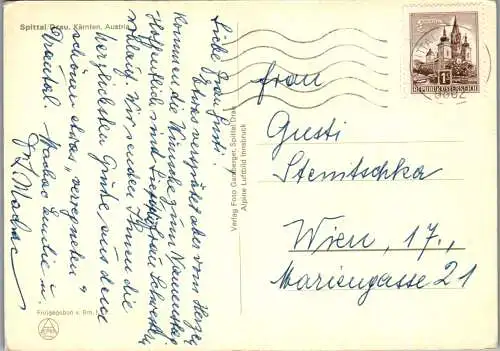 Spittal Drau, Kärnten, Austria
Liebe Frau Gusti!
Etwas verspätet aber vom Herzen
kommen die Wünsche zum Namenstag
Hoffentlich sind Sie auf Urlaub
Wir senden Ihnen die
herzlichsten Grüße aus dem
schönen etwas „verregneten"
Drautal.
u.
Verlag Foto Gamberger, Spittal Drau
Alpine Luftbild Innsbruck
Freigegeben v. Bm. f.
REPUBLIK ÖSTERREICH
1S
9802
Frau
Gusti
Stemitschka
Wien, 17.,
Mariengasse 21